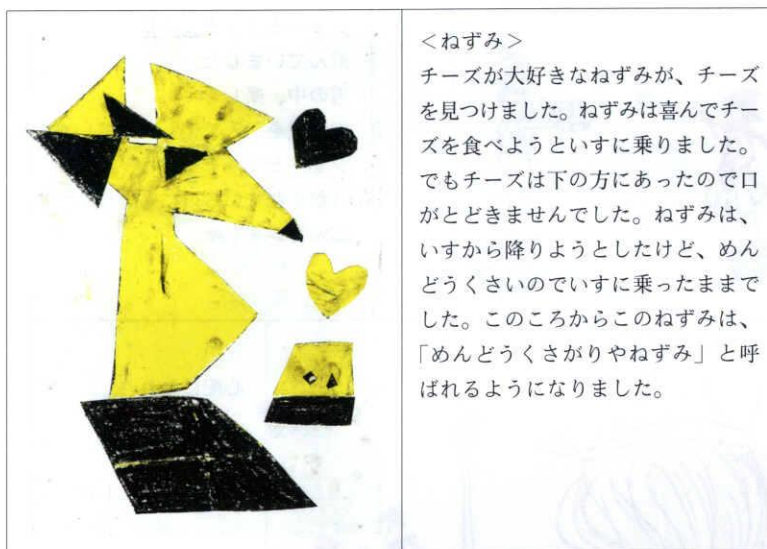 ＜ねずみ＞
チーズが大好きなねずみが、チーズ
を見つけました。ねずみは喜んでチー
ズを食べようといすに乗りました。
でもチーズは下の方にあったので口
がとどきませんでした。ねずみは、
いすから降りようとしたけど、めん
どうくさいのでいすに乗ったままで
した。このころからこのねずみは、
「めんどうくさがりやねずみ」と呼
ばれるようになりました。